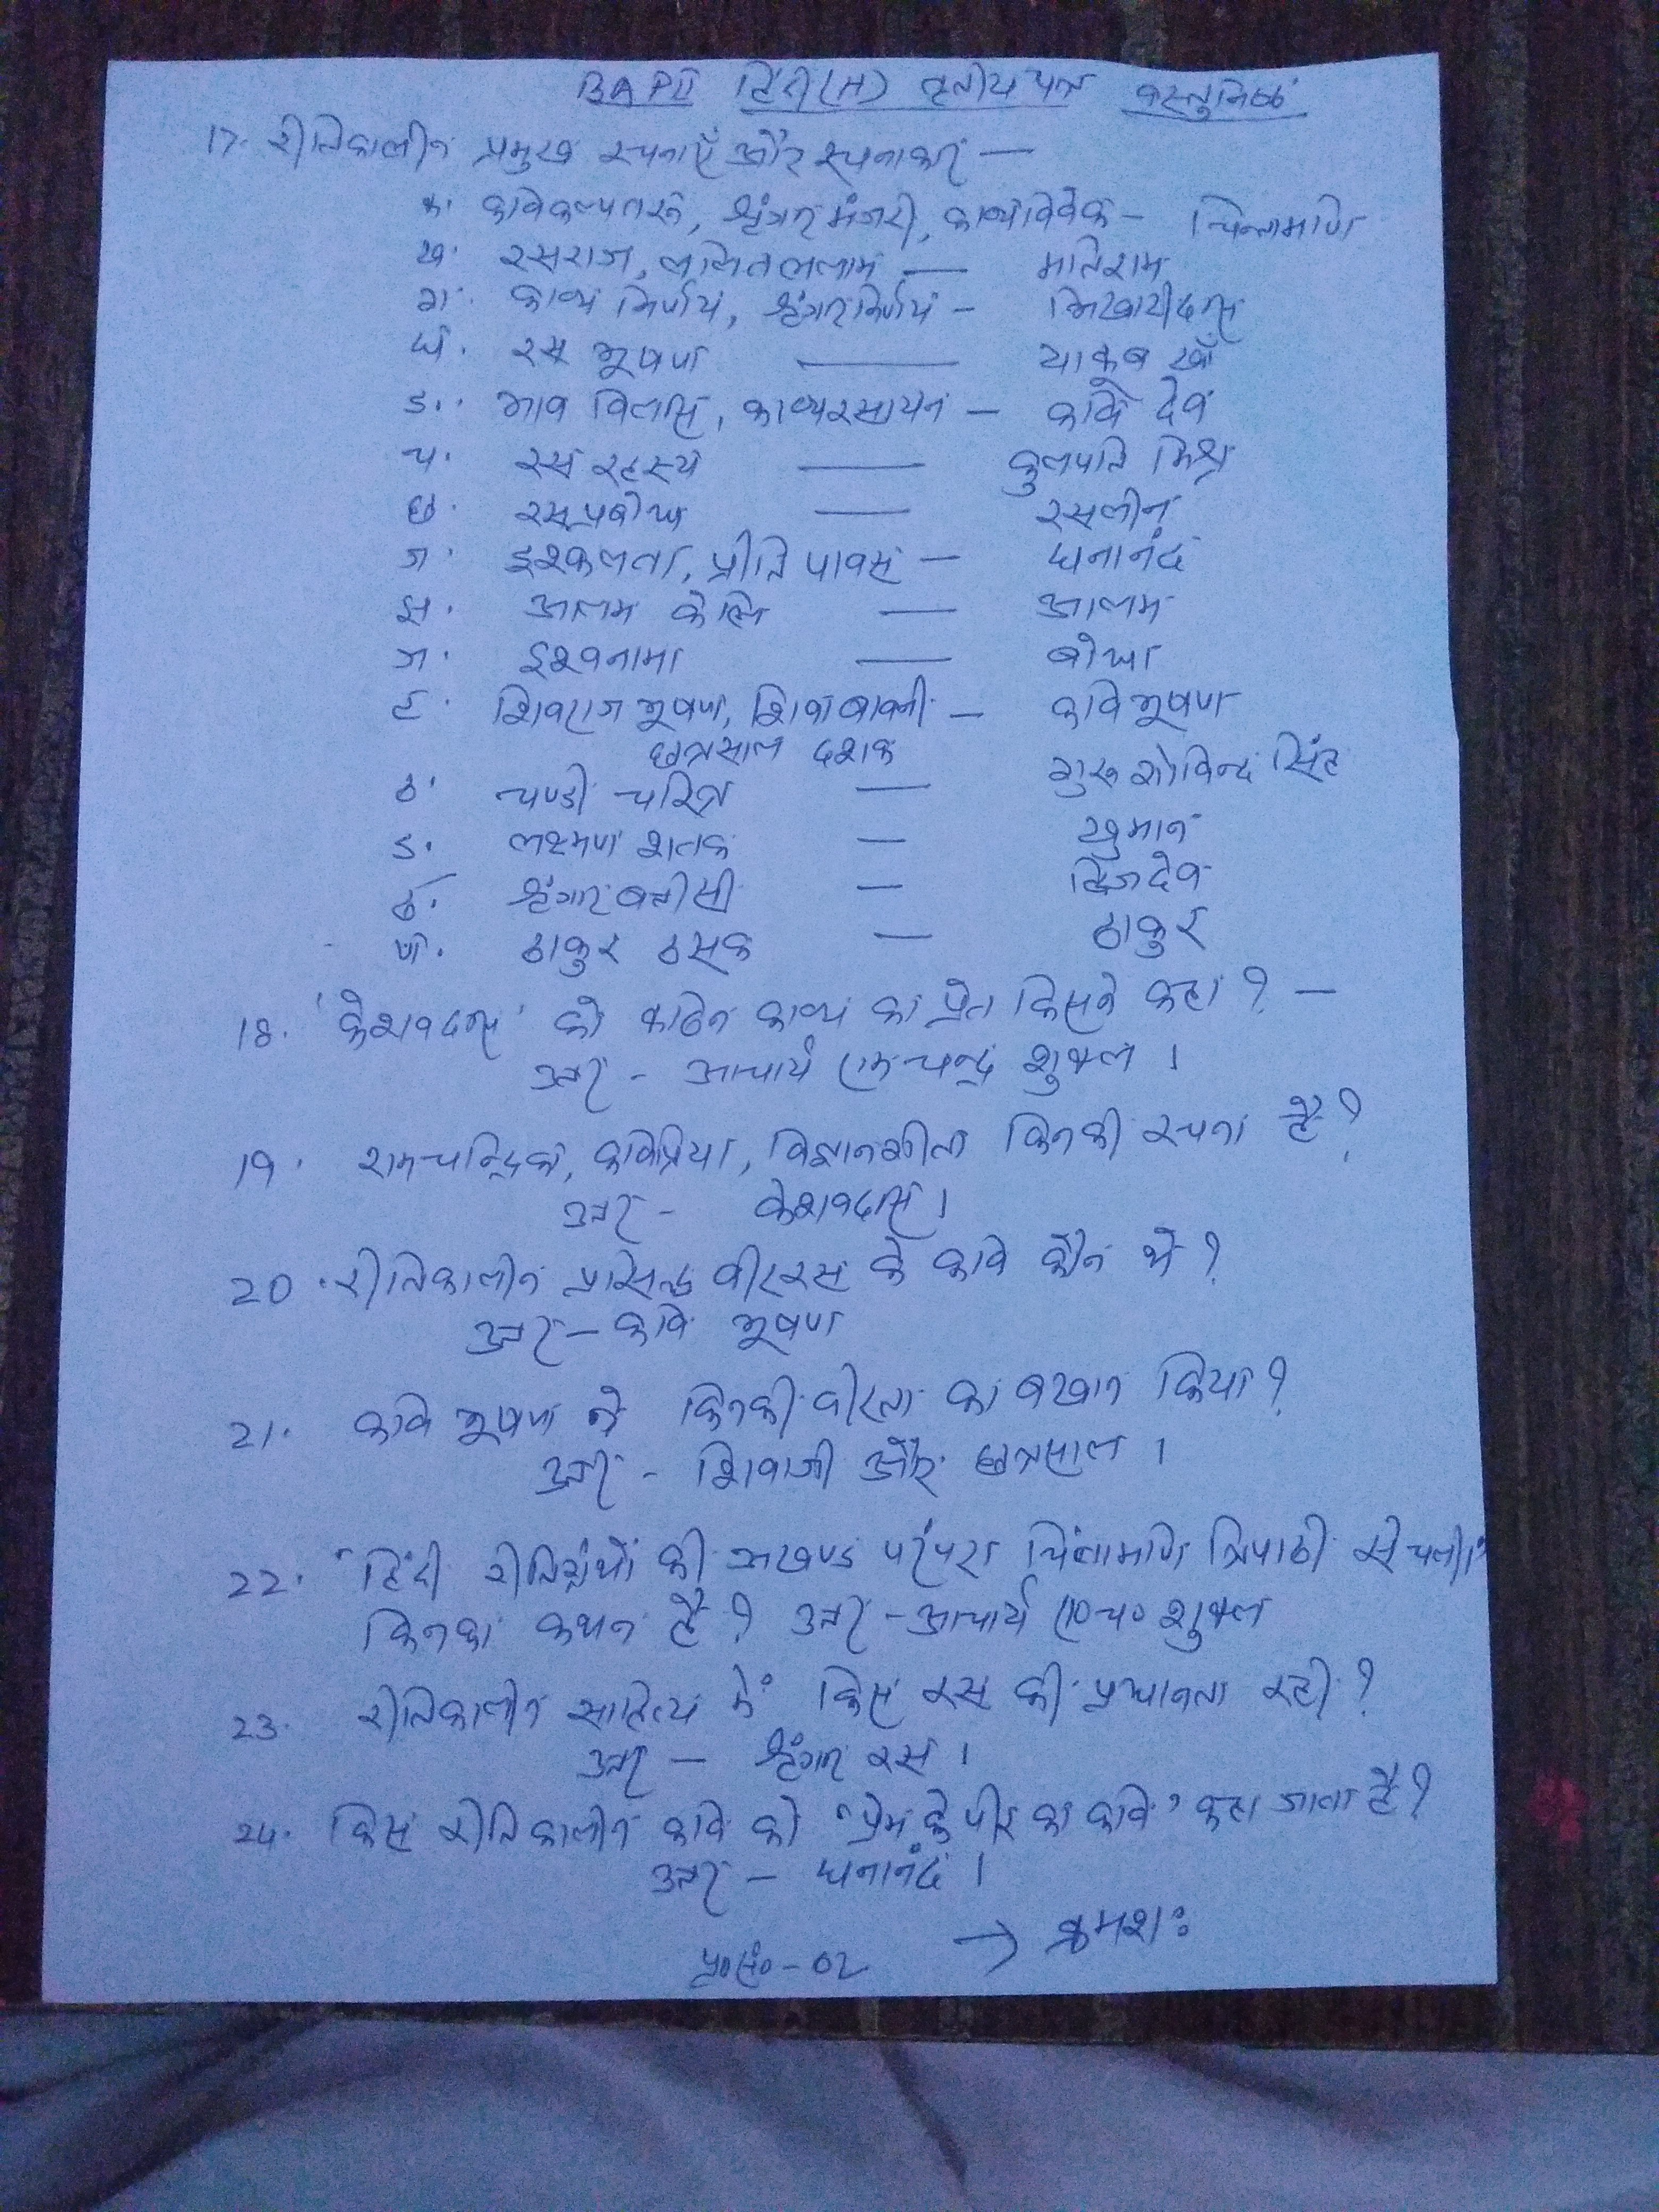 BA PII हिंदी (H) तृतीय पत्र वस्तुनिष्ठ
17. रीतिकालीन प्रमुख रचनाएँ और रचनाकार —
क. कविकल्पतरु, श्रृंगार मंजरी, काव्य विवेक - चिन्तामणि
ख. रसराज, ललितललाम — मतिराम
ग. काव्य निर्णय, श्रृंगार निर्णय - भिखारीदास
घ. रस भूषण — याकूब खाँ
ड.. भाव विलास, काव्यरसायन - कवि देव
च. रस रहस्य — कुलपति मिश्र
छ. रस प्रबोध — रसलीन
ज. इश्कलता, प्रीति पावस - घनानंद
झ. आलम केलि — आलम
ञ. इश्कनामा — बोधा
ट. शिवराज भूषण, शिवा बावनी - कवि भूषण
छत्रसाल दशक
ठ. चण्डी चरित्र — गुरु गोविन्द सिंह
ड. लक्ष्मण शतक — खुमान
ढ. श्रृंगार बत्तीसी — द्विजदेव
ण. ठाकुर ठसक — ठाकुर
18. 'केशवदास' को कठिन काव्य का प्रेत किसने कहा? —
उत्तर - आचार्य रामचन्द्र शुक्ल ।
19. रामचन्द्रिका, कविप्रिया, विज्ञानगीता किनकी रचना है?
उत्तर - केशवदास ।
20. रीतिकालीन प्रसिद्ध वीररस के कवि कौन थे?
उत्तर - कवि भूषण
21. कवि भूषण ने किनकी वीरता का बखान किया?
उत्तर - शिवाजी और छत्रसाल ।
22. "हिंदी रीतिग्रंथों की अखण्ड परंपरा चिंतामणि त्रिपाठी से चली।"
किनका कथन है? उत्तर - आचार्य रा०च० शुक्ल
23. रीतिकालीन साहित्य में किस रस की प्रधानता रही?
उत्तर — श्रृंगार रस ।
24. किस रीतिकालीन कवि को 'प्रेम के पीर का कवि' कहा जाता है?
उत्तर - घनानंद ।
→ क्रमशः
पृ०सं०-02